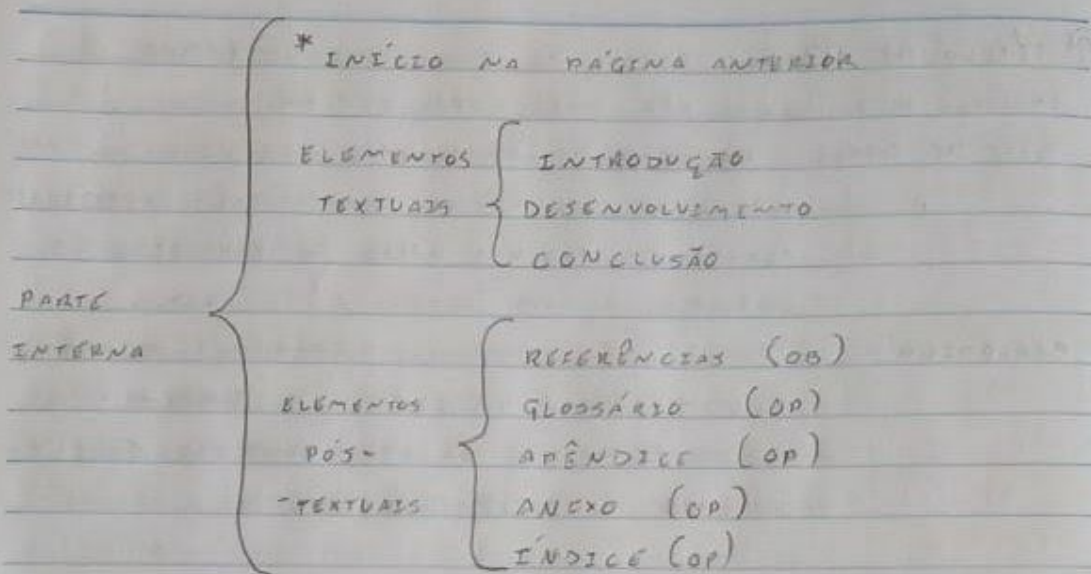 * INÍCIO NA PÁGINA ANTERIOR
PARTE
INTERNA
ELEMENTOS
TEXTUAIS
INTRODUÇÃO
DESENVOLVIMENTO
CONCLUSÃO
ELEMENTOS
PÓS-
-TEXTUAIS
REFERÊNCIAS (OB)
GLOSSÁRIO (OP)
APÊNDICE (OP)
ANEXO (OP)
ÍNDICE (OP)